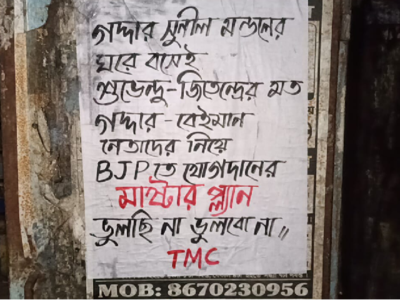 গদ্দার সুনীল মন্ডলের
ঘরে বসেই
শুভেন্দু-জিতেন্দ্রের মত
গদ্দার-বেইমান
নেতাদের নিয়ে
BJP তে যোগদানের
মাষ্টার প্ল্যান
ভুলছি না ভুলবো না ।।
TMC
MOB: 8670230956